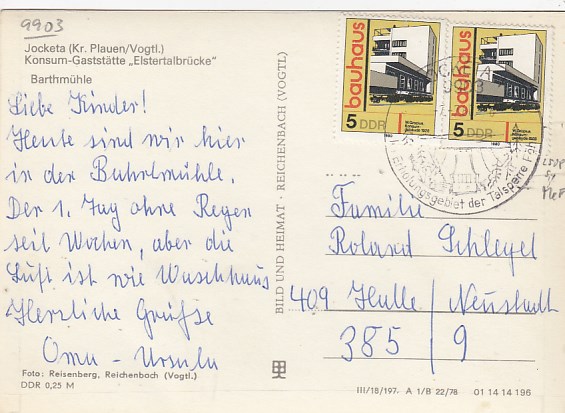 9903
Jocketa (Kr. Plauen/Vogtl.)
Konsum-Gaststätte „Elstertalbrücke"
Barthmühle
Liebe Kinder!
Heute sind wir hier
in der Buhrlmühle.
Der 1. Tag ohne Regen
seit Wochen, aber die
Luft ist wie Waschhaus
Herzliche Grüße
Oma - Ursula
Foto: Reisenberg, Reichenbach (Vogtl.)
DDR 0,25 M
BILD UND HEIMAT · REICHENBACH (VOGTL)
bauhaus
5 DDR
bauhaus
5 DDR
Erholungsgebiet der Talsperre
Familie
Roland Schlegel
409 Halle / Neustadt
385 / 9
III/18/197. A 1/B 22/78 01 14 14 196